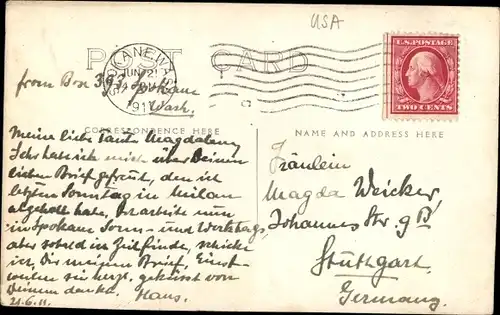 USA
POST CARD
SPOKANE, WASH.
JUN 21
1911
U.S. POSTAGE
TWO CENTS
from Box 393 Spokane
Wash.
CORRESPONDENCE HERE
NAME AND ADDRESS HERE
Meine liebe Tante Magdalena
Ich habe mich über Deinen
lieben Brief gefreut, den ich
letzten Sonntag in Milan
abgeholt habe. Ich arbeite nun
in Spokane Sonn- und Werktags,
aber sobald ich Zeit finde, schicke
ich Dir meinen Brief. Einst-
weilen sei herzl. geküsst von
Deinem dankb. Hans.
21.6.11.
Fräulein
Magda Weicker,
Johannes Str. 9 B
Stuttgart.
Germany.